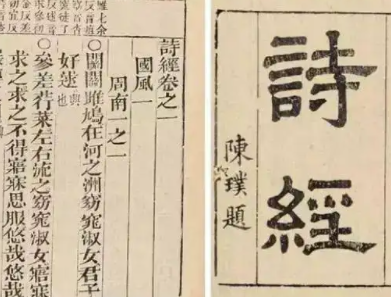 詩經
陳璞題
詩經卷之一
國風一
周南一之一
○關關雎鳩在河之洲窈窕淑女君子
好逑興也
○參差荇菜左右流之窈窕淑女寤寐
求之求之不得寤寐思服悠哉悠哉